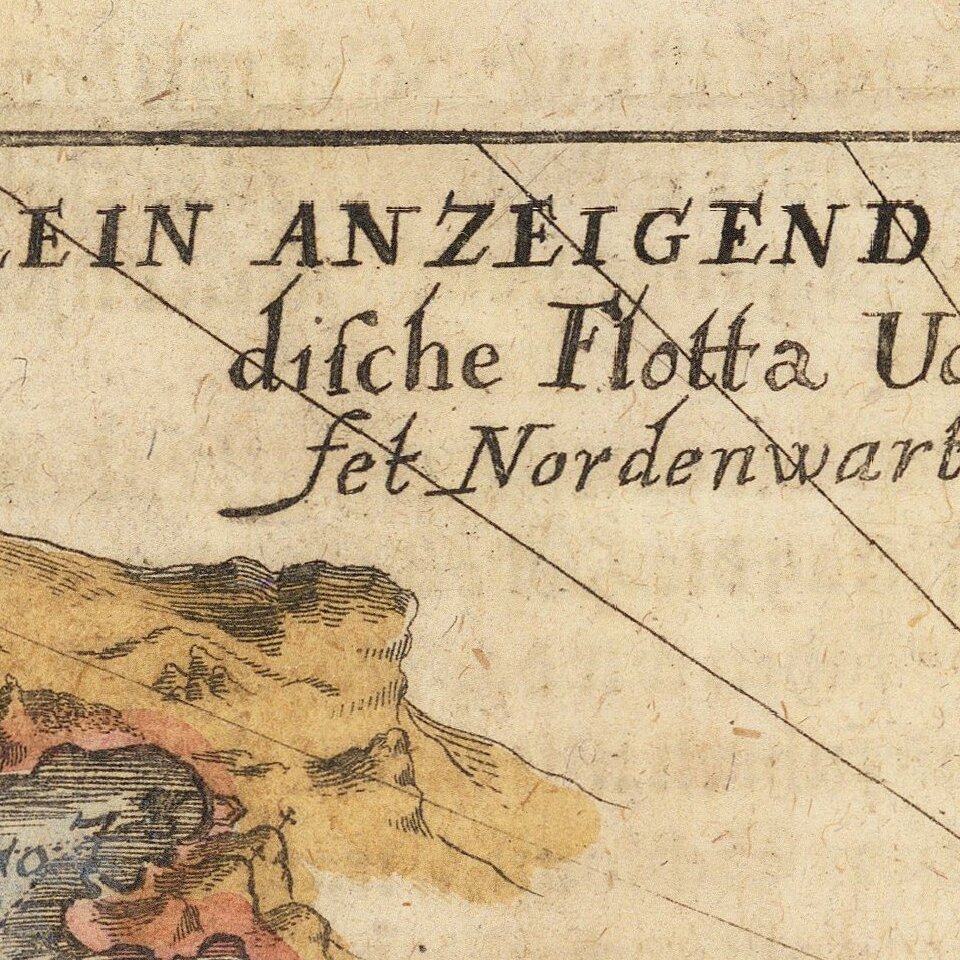 LEIN ANZEIGEND
diſche Flotta
ſet Nordenwart